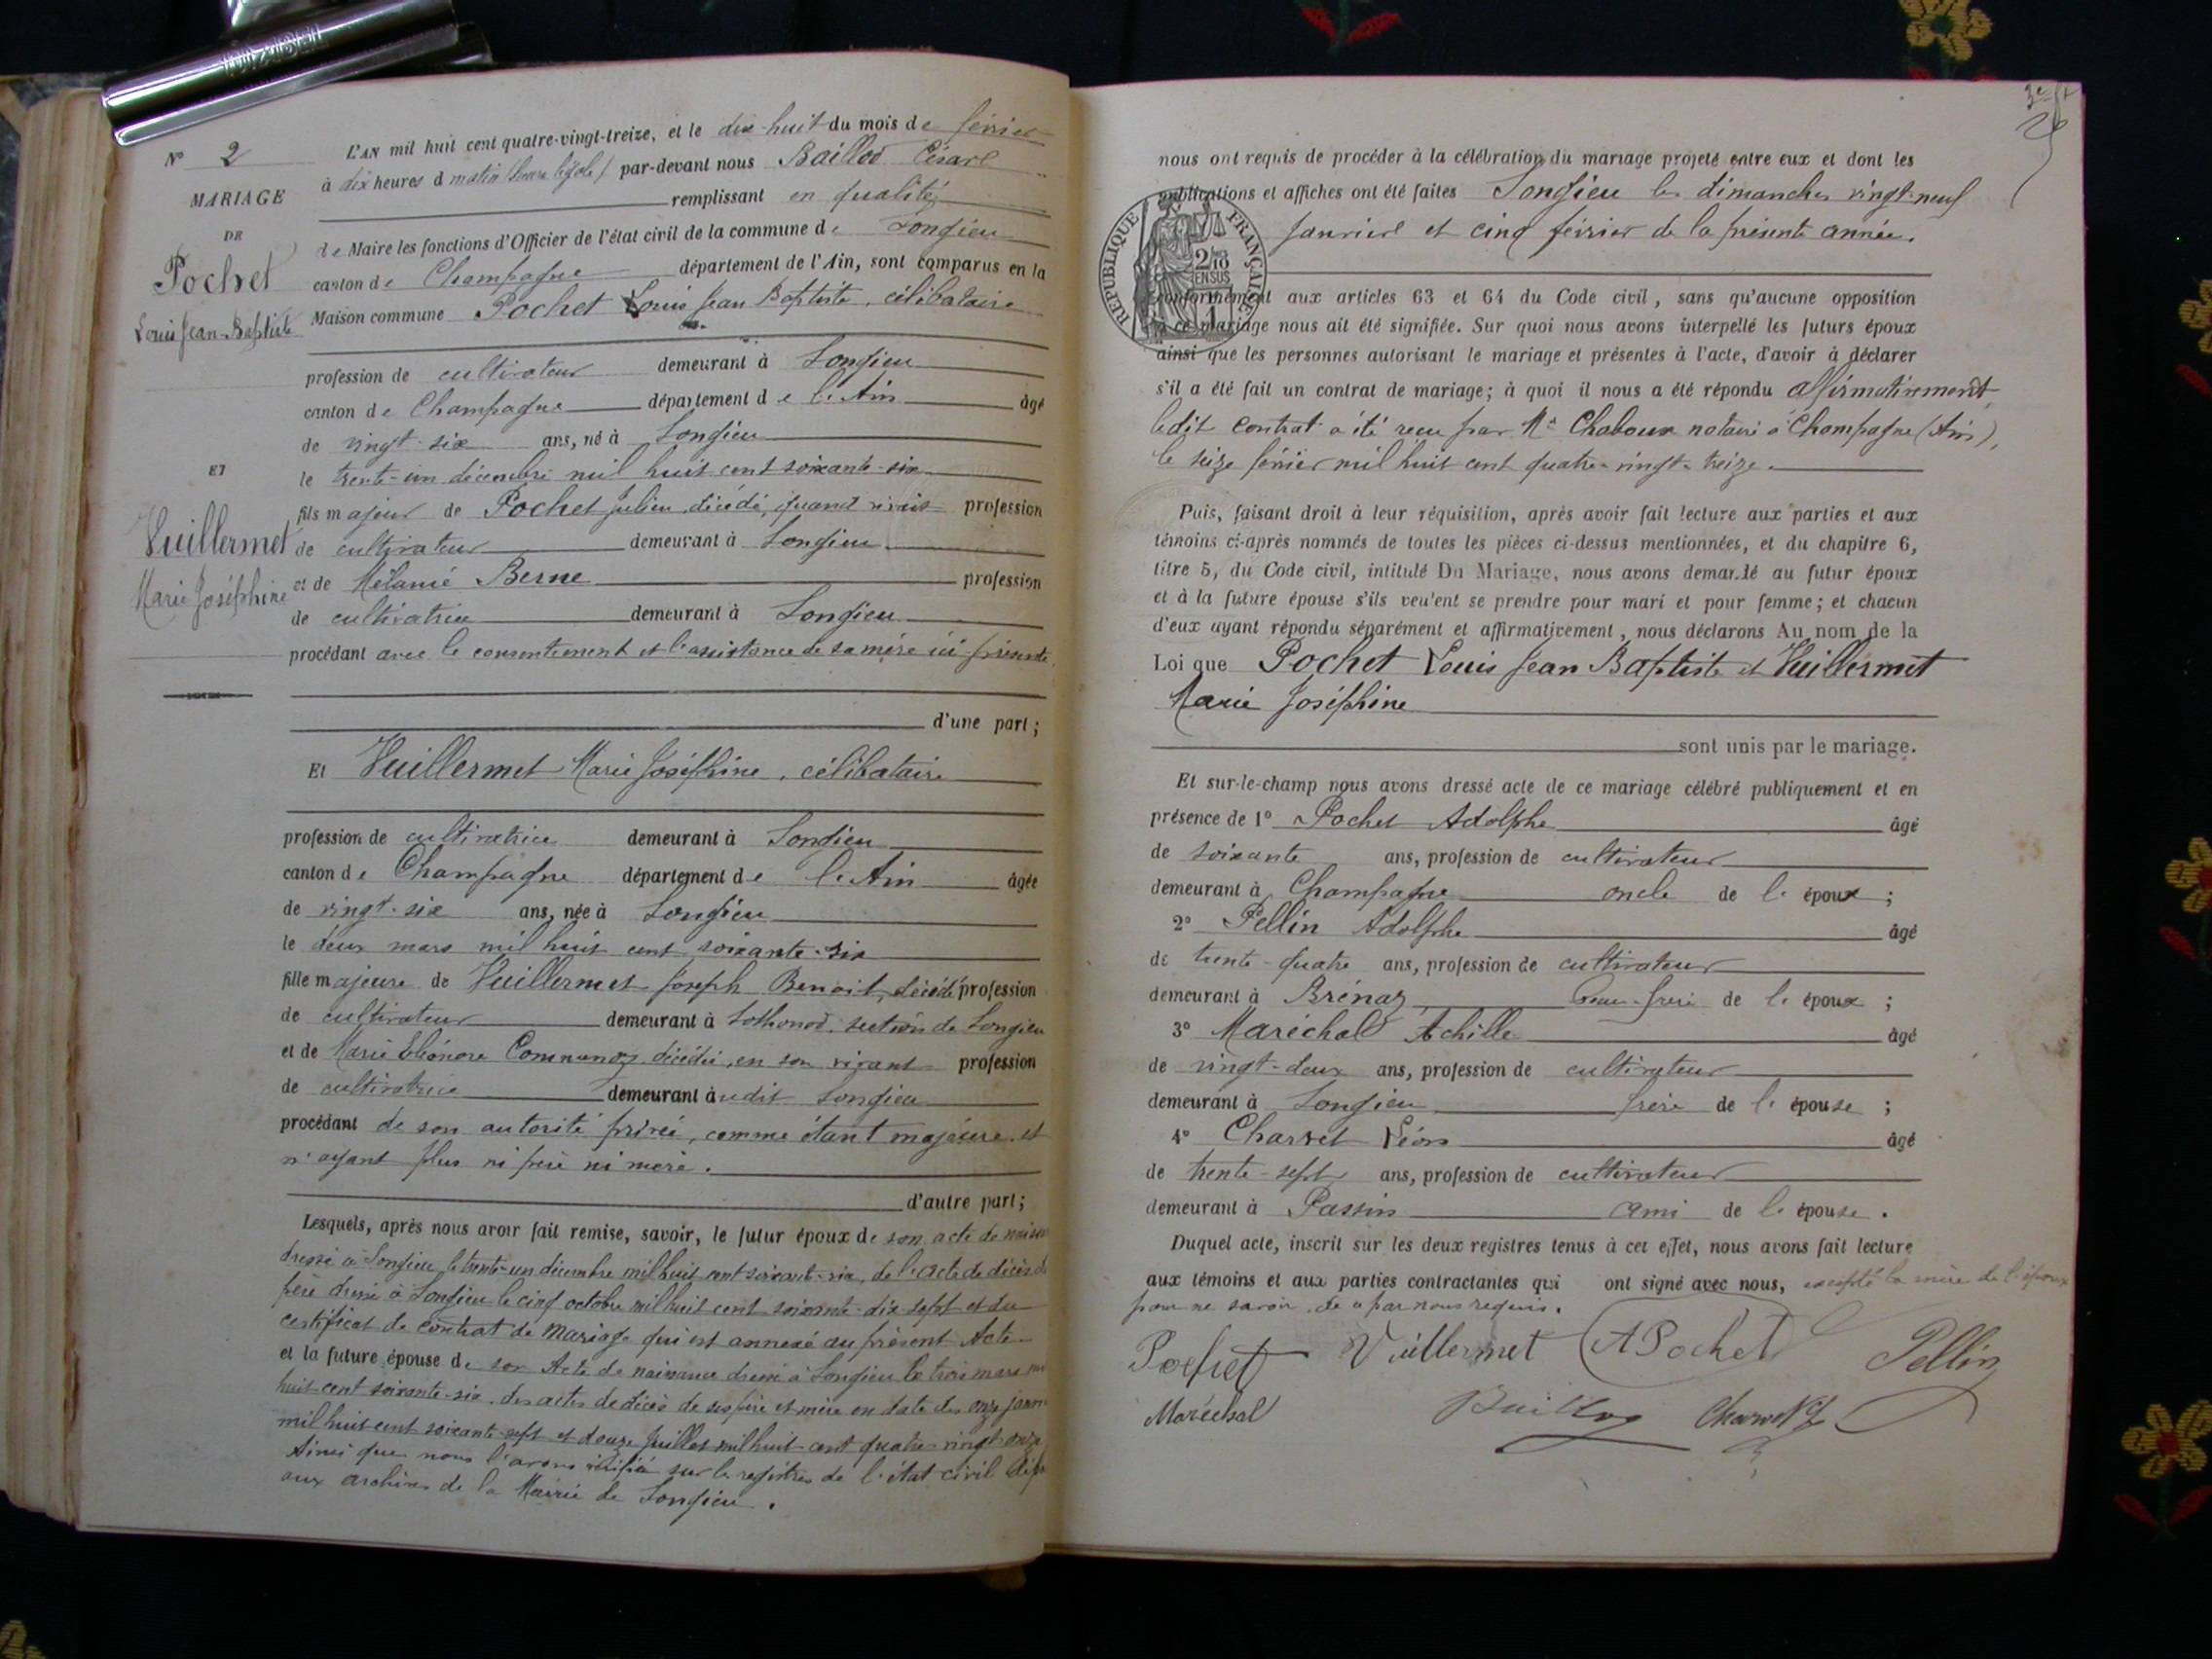 N° 2
MARIAGE
DE
Pochet
Louis Jean-Baptiste
ET
Vuillermet
Marie Joséphine
L'AN mil huit cent quatre-vingt-treize, et le dix-huit du mois de février
à dix heures d matin (heure légale) par-devant nous Baillod César
remplissant en qualité
de Maire les fonctions d'Officier de l'état civil de la commune de Songieu
canton de Champagne département de l'Ain, sont comparus en la
Maison commune Pochet Louis Jean Baptiste, célibataire
profession de cultivateur demeurant à Songieu
canton de Champagne département de l'Ain âgé
de vingt-six ans, né à Songieu
le trente-un décembre mil huit cent soixante-six
fils majeur de Pochet Julien décédé, quand vivait profession
de cultivateur demeurant à Songieu
et de Mélanie Berne profession
de cultivatrice demeurant à Songieu
procédant avec le consentement et l'assistance de sa mère ici présente,
d'une part;
Et Vuillermet Marie Joséphine, célibataire
profession de cultivatrice demeurant à Songieu
canton de Champagne département de l'Ain âgée
de vingt-six ans, née à Songieu
le deux mars mil huit cent soixante-six
fille majeure de Vuillermet Joseph Benoit, décédé profession
de cultivateur demeurant à Sothonod, section de Songieu
et de Marie Eléonore décédée, en son vivant profession
de cultivatrice demeurant à udit Songieu
procédant de son autorité privée, comme étant majeure et
n'ayant plus ni père ni mère.
d'autre part;
Lesquels, après nous avoir fait remise, savoir, le futur époux de son acte de
dressé à Songieu le trente-un décembre mil huit cent soixante-six, de l'acte de décès
père dressé à Songieu le cinq octobre mil huit cent soixante-dix-sept et du
certificat de contrat de mariage qui est annexé au présent Acte
et la future épouse de son Acte de naissance dressé à Songieu le trois mars
huit cent soixante-six, des actes de décès de ses père et mère en date des onze
mil huit cent soixante-sept et douze juillet mil huit cent quatre-vingt-onze
Ainsi que nous l'avons vérifié sur les registres de l'état civil
aux archives de la Mairie de Songieu.
nous ont requis de procéder à la célébration du mariage projeté entre eux et dont les
publications et affiches ont été faites Songieu les dimanches vingt-neuf
janvier et cinq février de la présente année.
RÉPUBLIQUE FRANÇAISE
2/10 EN SUS
conformément aux articles 63 et 64 du Code civil, sans qu'aucune opposition
à ce mariage nous ait été signifiée. Sur quoi nous avons interpellé les futurs époux
ainsi que les personnes autorisant le mariage et présentes à l'acte, d'avoir à déclarer
s'il a été fait un contrat de mariage; à quoi il nous a été répondu affirmativement
ledit contrat a été reçu par Me Chaboux notaire à Champagne (Ain),
le seize février mil huit cent quatre-vingt-treize.
Puis, faisant droit à leur réquisition, après avoir fait lecture aux parties et aux
témoins ci-après nommés de toutes les pièces ci-dessus mentionnées, et du chapitre 6,
titre 5, du Code civil, intitulé Du Mariage, nous avons demandé au futur époux
et à la future épouse s'ils veulent se prendre pour mari et pour femme; et chacun
d'eux ayant répondu séparément et affirmativement, nous déclarons Au nom de la
Loi que Pochet Louis Jean Baptiste et Vuillermet
Marie Joséphine
sont unis par le mariage.
Et sur-le-champ nous avons dressé acte de ce mariage célébré publiquement et en
présence de 1° Pochet Adolphe âgé
de soixante ans, profession de cultivateur
demeurant à Champagne oncle de l'époux;
2° Pellin Adolphe âgé
de trente-quatre ans, profession de cultivateur
demeurant à Brénaz beau-frère de l'époux;
3° Maréchal Achille âgé
de vingt-deux ans, profession de cultivateur
demeurant à Songieu frère de l'épouse;
4° Charvet Léon âgé
de trente-sept ans, profession de cultivateur
demeurant à Passin ami de l'épouse.
Duquel acte, inscrit sur les deux registres tenus à cet effet, nous avons fait lecture
aux témoins et aux parties contractantes qui ont signé avec nous, excepté la mère de l'époux
pour ne savoir, de ce par nous requis.
Pochet Vuillermet A Pochet Pellin
Maréchal Baillod Charvet